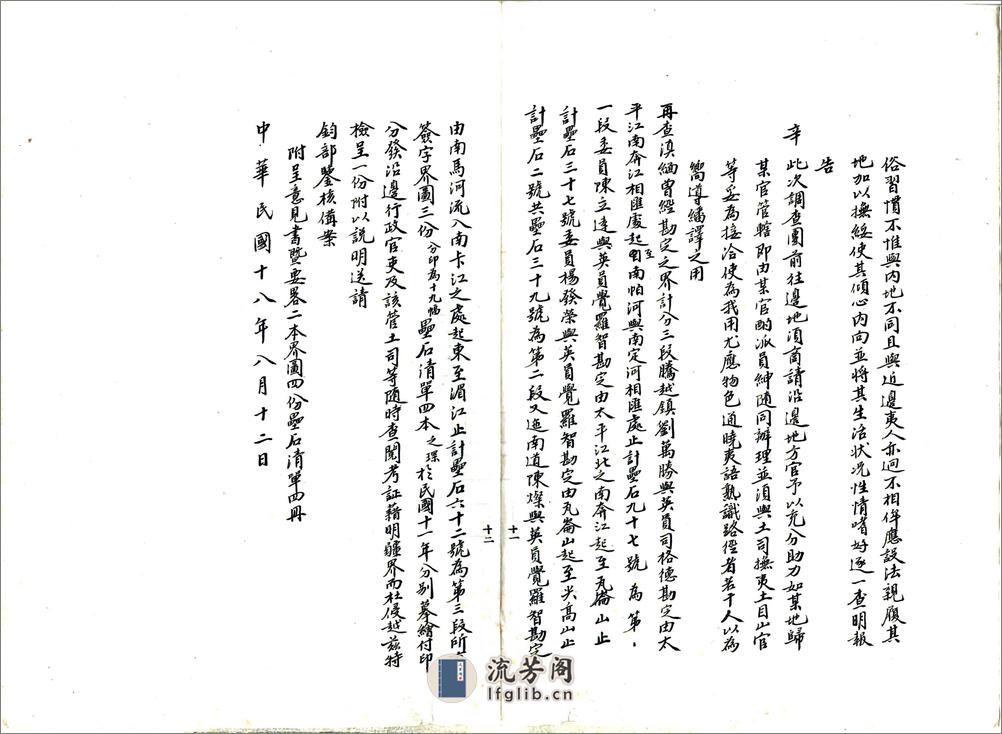 俗習慣不惟與內地不同且與近邊夷人亦迥不相侔應設法親履其
地加以撫綏使其傾心內向並將其生活狀況性情嗜好逐一查明報
告
辛 此次調查團前往邊地須商請沿邊地方官予以充分助力如某地歸
某官管轄即由某官酌派員紳隨同辦理並須與土司撫夷土目山官
等妥為接洽使為我用尤應物色通曉夷語熟識路徑者若干人以為
嚮導繙譯之用
再查滇緬曾經勘定之界計分三段騰越鎮劉萬勝與英員司格德勘定由太
平江南奔江相匯處起至南帕河與南定河相匯處止計壘石九十七號為第
一段委員陳立達與英員覺羅智勘定由太平江北之南奔江起至瓦崙山止
計壘石三十七號委員楊發榮與英員覺羅智勘定由瓦崙山起至尖高山止
計壘石二號共壘石三十九號為第二段又迤南道陳燦與英員覺羅智勘定
十一
十二
由南馬河流入南卡江之處起東至湄江止計壘石六十二號為第三段所
簽字界圖三份分印為十九幅壘石清單四本之琛於民國十一年分別摹繪付印
分發沿邊行政官吏及該管土司等隨時查閱考証藉明疆界而杜侵越茲特
檢呈一份附以說明送請
鈞部鑒核備案
附呈意見書暨要畧二本界圖四份壘石清單四冊
中華民國十八年八月十二日
流芳阁
lfglib.cn